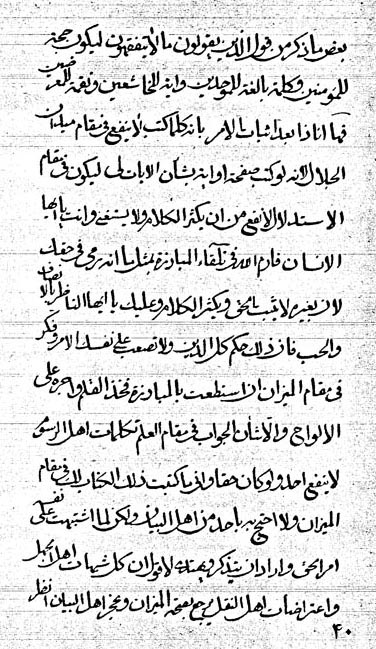 بعض ما ذكر من قول الذين يقولون ما لا يفقهون ليكون حجة
للمومنين وكلمة بالغة للموحدين واية للخاشعين ونقمة للمعرضين
فها انا ذا بعد اثبات الامر بانه كلما كتب لا ينفع في مقام ميدان
الجلال لانه لو كتب صفحة او اية بشان الايات لى ليكون في مقام
الاستدلال لانفع من ان يكثر الكلام ولا يستغنى وانت يا ايها
الانسان فارم الله في تلقاء المبارزة بمثل ما انه رمى في حقك
لان بغيره لا يثبت الحق ويكثر الكلام وعليك يا ايها الناظر بالانصاف
والحب فان ذلك حكم كل الدين ولا تصعب على نفسك الامر وفكر
في مقام الميزان ان استطعت بالمبارزة فخذ القلم واجره على
الالواح والا شأن الجواب في مقام العلم كلمات اهل الرسوم
لا ينفع احد ولو كان حقا وانى ما كتبت ذلك الكتاب لك في مقام
الميزان ولا احتج به باحد من اهل البيان ولكن لما اشتبهت على نفسه
امر الحق واراد ان يتذكر لا قول ان كل شبهات اهل الجهل
واعتراضات اهل النقل يرجع بصفحة الميزان وعجز اهل البيان انظر
۴۰